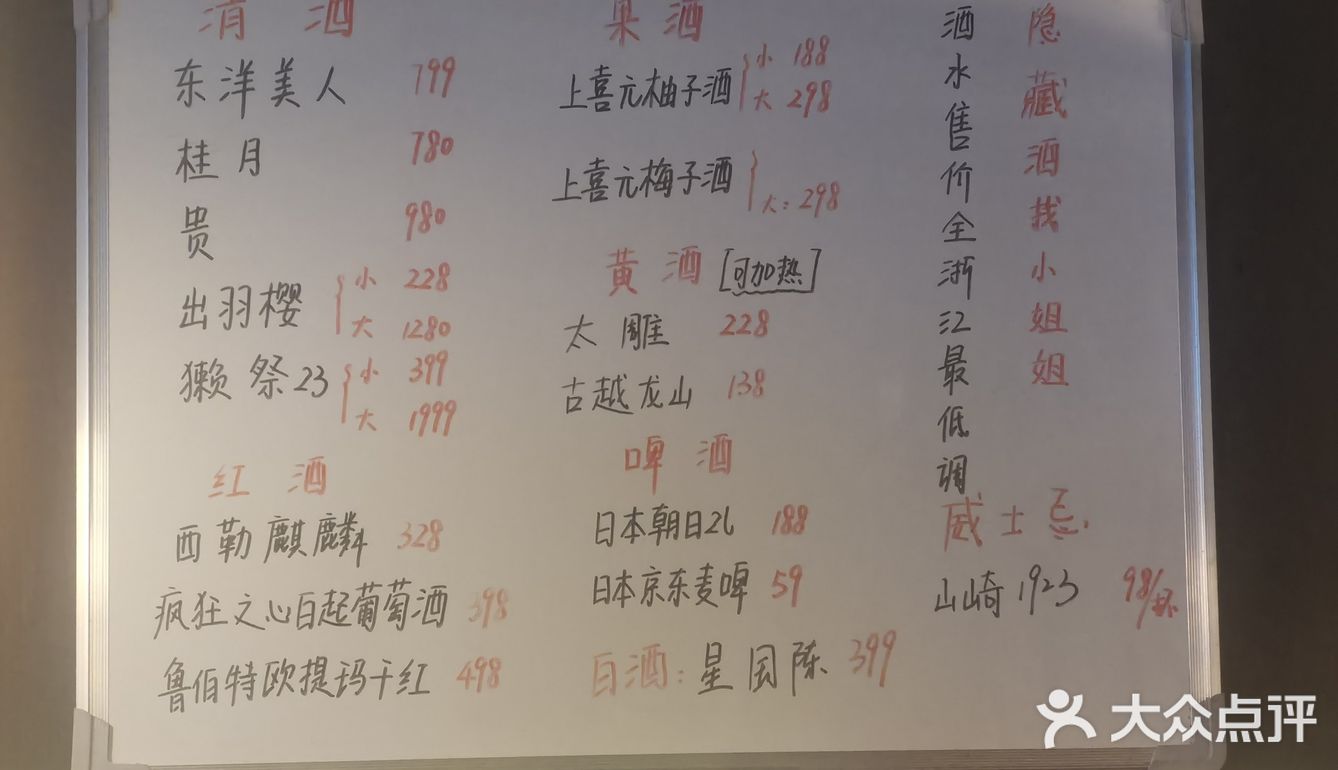 清酒
东洋美人 799
桂月 780
贵 980
出羽樱 小 228
大 1280
獭祭23 小 399
大 1999
红酒
西勒麒麟 328
疯狂之心白起葡萄酒 398
鲁伯特欧提玛干红 498
果酒
上喜元柚子酒 小 188
大 298
上喜元梅子酒
大：298
黄酒 [可加热]
太雕 228
古越龙山 138
啤酒
日本朝日2L 188
日本京东麦啤 59
白酒：星国陈 399
酒水售价全浙江最低调
隐藏酒找小姐姐
威士忌
山崎1923 98/杯
大众点评